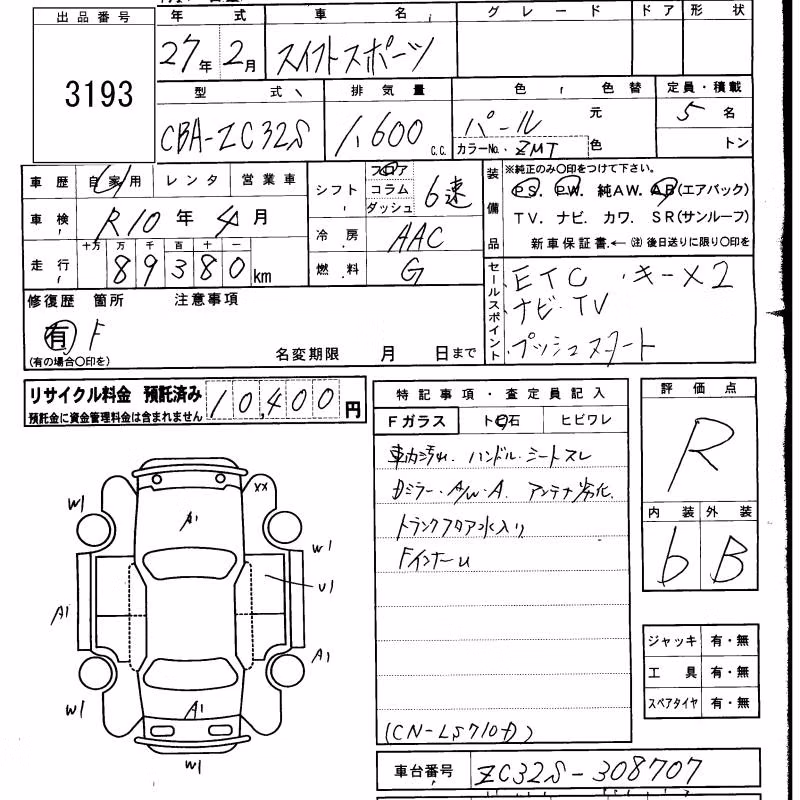 出品番号
3193
年 式
27年 2月
車 名
スイフトスポーツ
グレード
ドア
形 状
型 式
CBA-ZC32S
排気量
1,600 C.C.
色 色替
パール 元色
カラーNo. ZMT
定員・積載
5 名
トン
車歴 自家用 レンタ 営業車
車検 R10年 4月
走行 十万 万 千 百 十 一
89380 km
シフト フロア コラム ダッシュ 6速
冷房 AAC
燃料 G
装備品
※純正のみ〇印をつけて下さい。
PS. PW. 純AW. AB(エアバック)
TV. ナビ. カワ. SR(サンルーフ)
新車保証書.← (注)後日送りに限り〇印を
セールスポイント
ETC ・キーX2
ナビ・TV
プッシュスタート
修復歴 箇所 注意事項
有 F
(有の場合〇印を)
名変期限 月 日まで
リサイクル料金 預託済み
預託金に資金管理料金は含まれません
10,400円
特記事項・査定員記入
Fガラス ト石 ヒビワレ
車内汚れ. ハンドル・シートスレ
Dミラー・A/W・A. アンテナ劣化.
トランクフロア水入り
FインナーU
(CN-LS710D)
評価点
R
内装 外装
6 B
ジャッキ 有・無
工具 有・無
スペアタイヤ 有・無
車台番号 ZC32S-308707
W1
XX
A1
W1
U1
A1
A1
W1
A1
W1